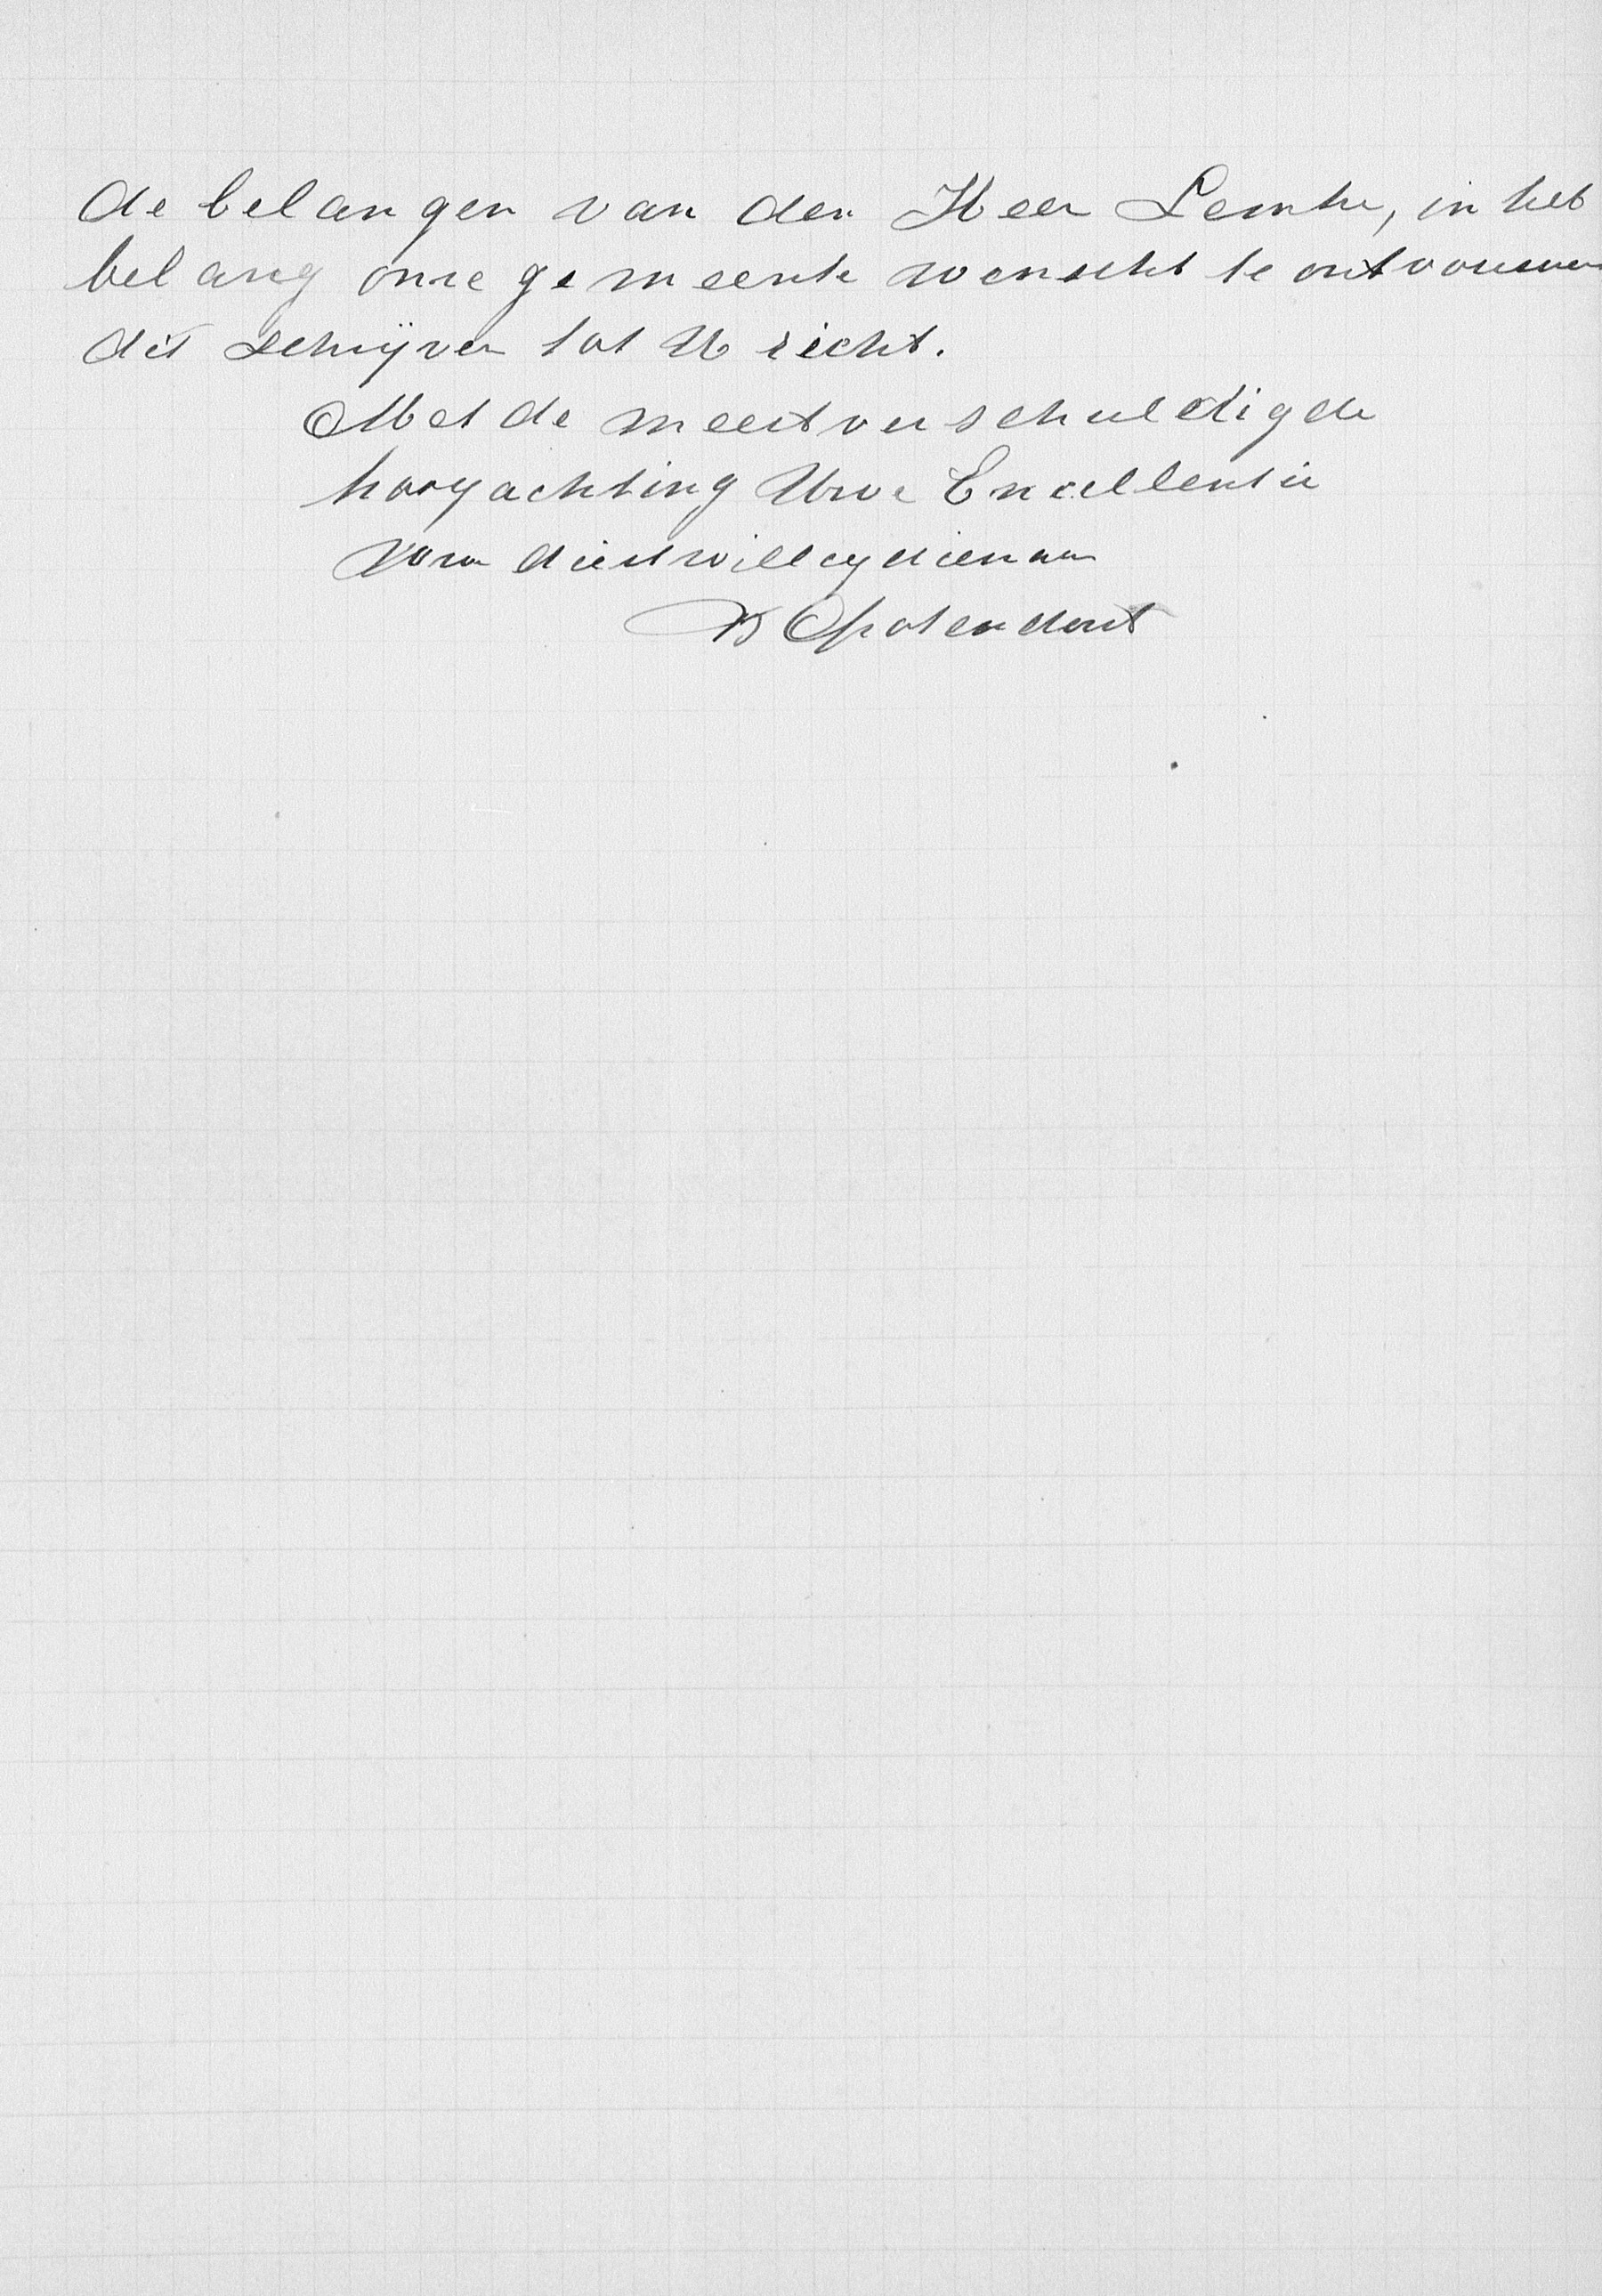 de belangen van den Heer Lemke, in het
belang onze gemeente wenscht te ontvouwen
dit schrijven tot U richt.
Met de meestverschuldigde
hoogachting Uwe Excellentie
Uwe dienstwillig dienaar